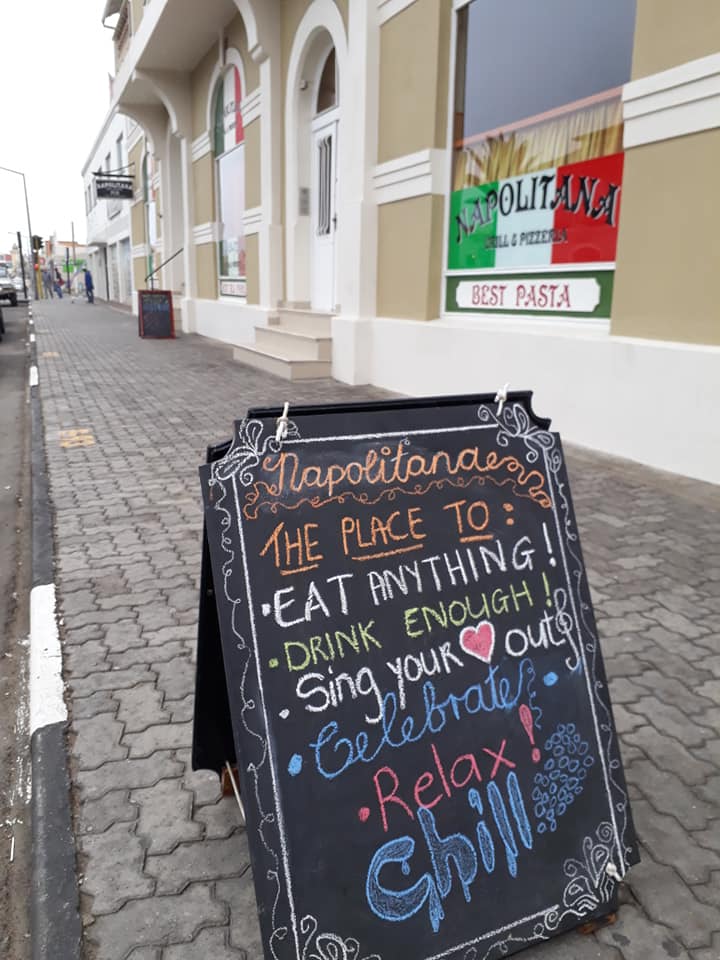 NAPOLITANA
NAPOLITANA
GRILL & PIZZERIA
BEST PASTA
Napolitana
THE PLACE TO:
• EAT ANYTHING!
• DRINK ENOUGH!
• Sing your ♥ out
• Celebrate
• Relax!
Chill